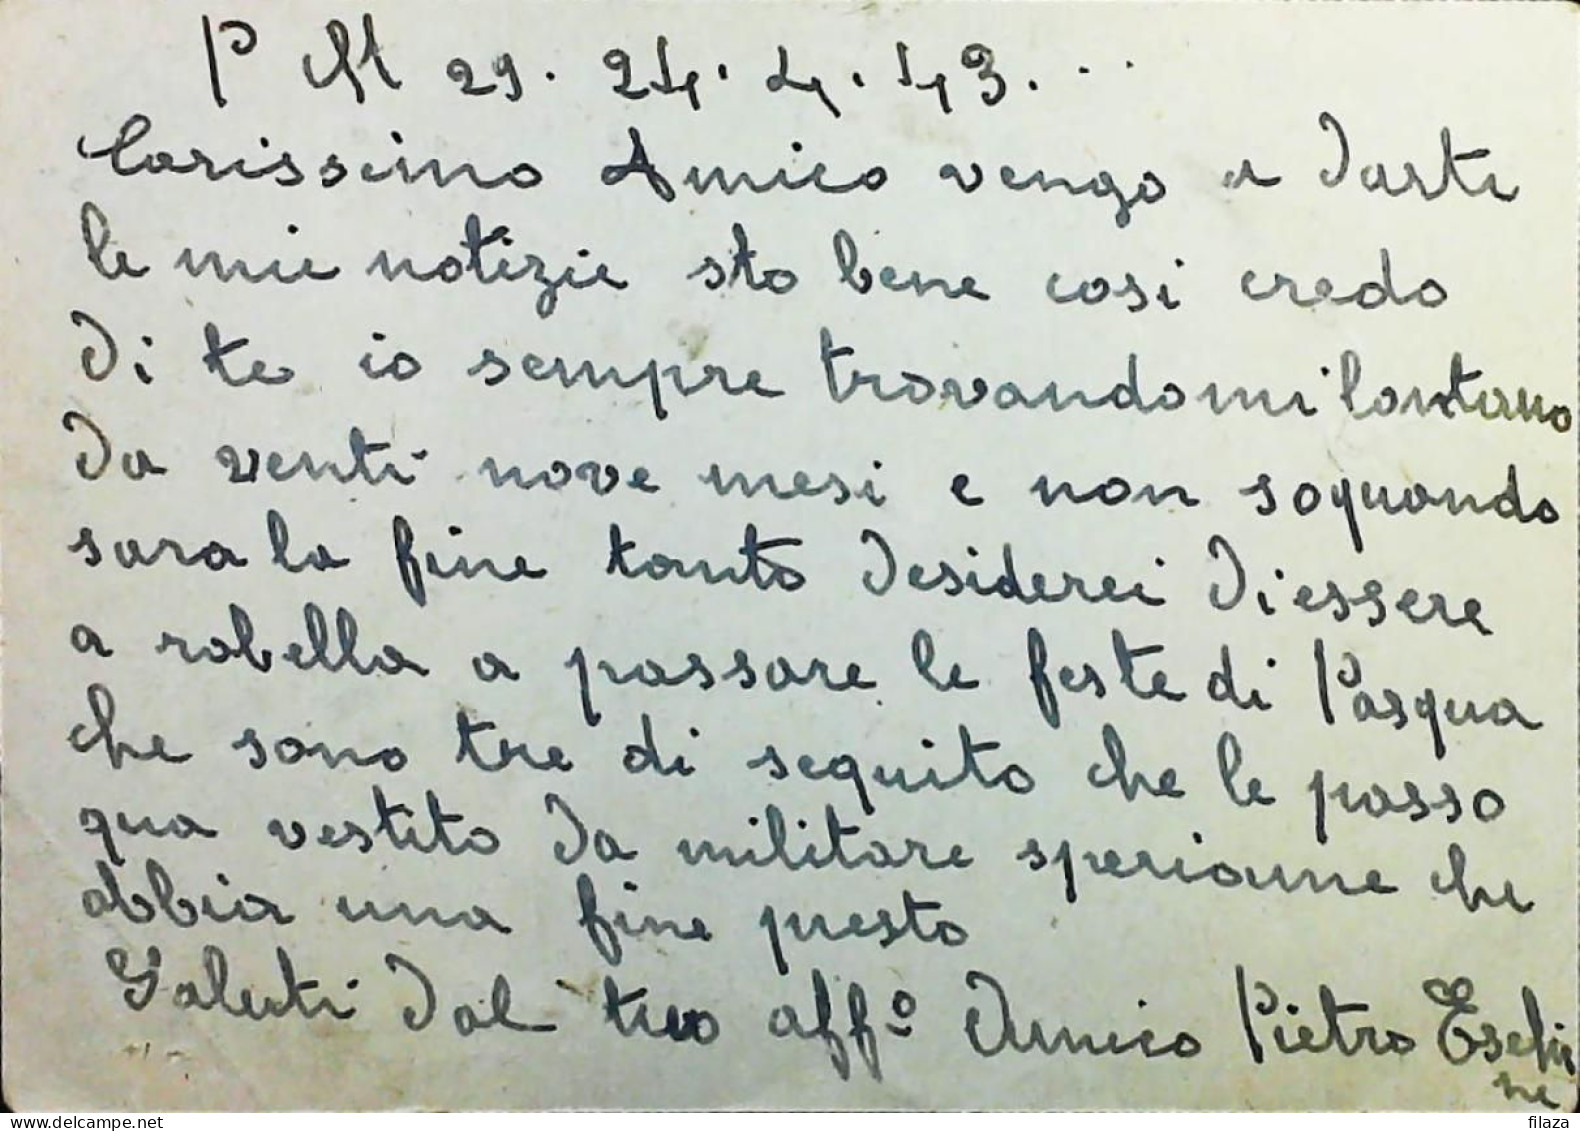 P M 29. 24. 4. 43. . .
Carissimo Amico vengo a darti
le mie notizie sto bene cosi credo
di te io sempre trovandomi lontano
da venti nove mesi e non soquando
sara la fine tanto desiderei di essere
a robella a passare le feste di Pasqua
che sono tre di sequito che le passo
qua vestito da militare speriame che
abbia una fine presto
Saluti dal tuo affº Amico Pietro Eschi
ne
filaza